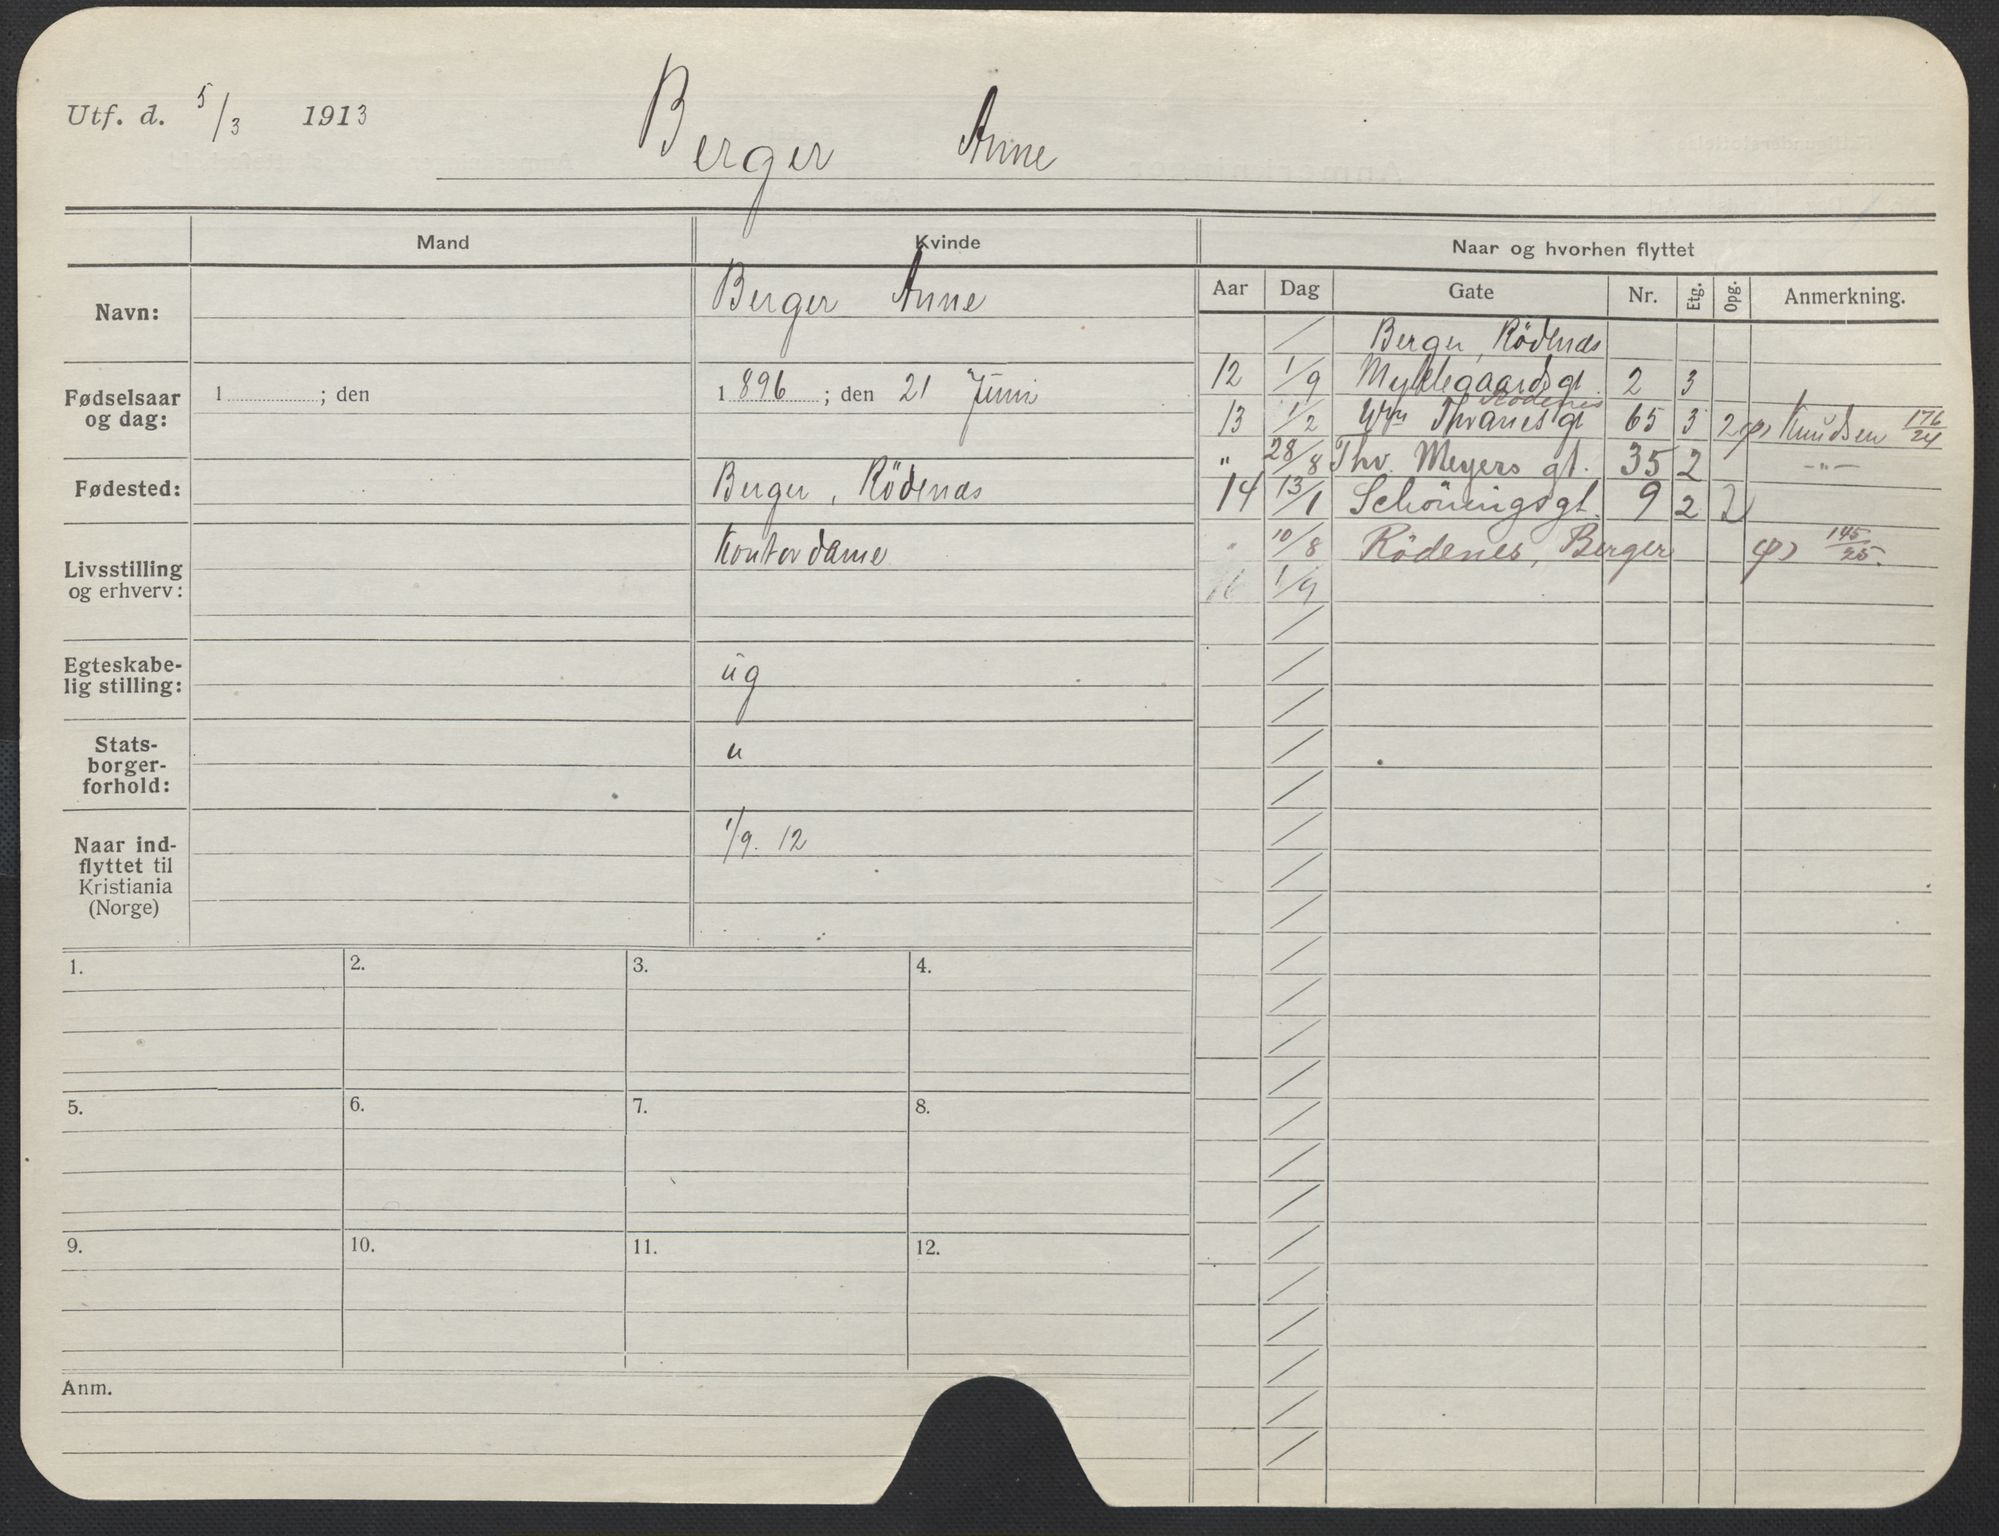 Utf. d. 5/3 1913
Berger Anne
Mand
Kvinde
Naar og hvorhen flyttet
Navn:
Berger Anne
Fødselsaar og dag:
1 ; den
1 896 ; den 21 Juni
Fødested:
Berger, Rödenæs
Livsstilling og erhverv:
Kontordame
Egteskabe-
lig stilling:
ug
Stats-
borger-
forhold:
u
Naar ind-
flyttet til
Kristiania
(Norge)
1/9. 12
Aar Dag Gate Nr. Etg. Opg. Anmerkning.
/ Berger, Rödenæs
12 1/9 Myklegaardsgt. 2 3
Rödenes
13 1/2 Wm Thranesgt 65 3 2 Knudsen 176/24
" 28/8 Thv. Meyers gt. 35 2 -"-
14 13/1 Schöningsgt. 9 2 2
" 10/8 Rödenes, Berger 145/25.
16 1/9
1. 2. 3. 4.
5. 6. 7. 8.
9. 10. 11. 12.
Anm.